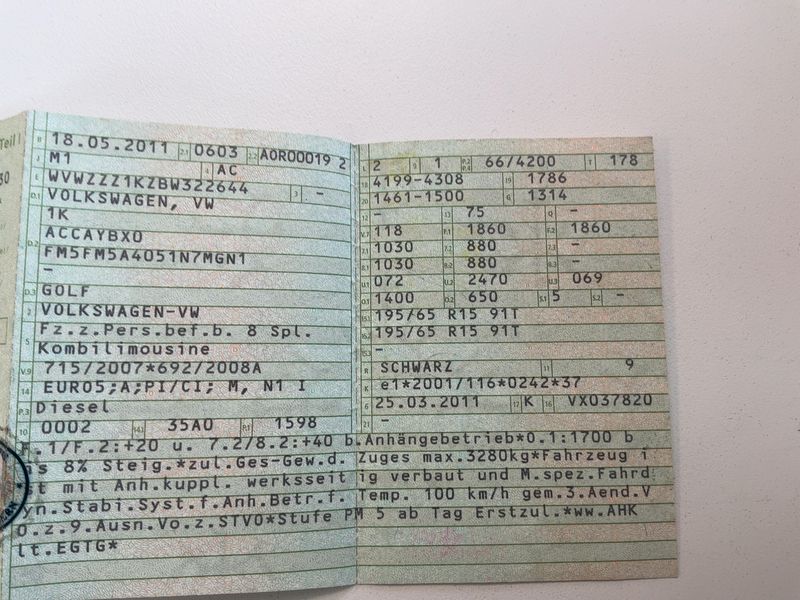 Teil I
B 18.05.2011 2.1 0603 2.2 A0R00019 2
J M1 4 AC
E WVWZZZ1KZBW322644 3 -
D.1 VOLKSWAGEN, VW
1K
D.2 ACCAYBX0
FM5FM5A4051N7MGN1
-
D.3 GOLF
2 VOLKSWAGEN-VW
5 Fz.z.Pers.bef.b. 8 Spl.
Kombilimousine
V.9 715/2007*692/2008A
14 EURO5;A;PI/CI; M, N1 I
P.3 Diesel
10 0002 14.1 35A0 P.1 1598
L 2 9 1 P.2 P.4 66/4200 T 178
18 4199-4308 19 1786
20 1461-1500 G 1314
12 - 13 75 Q -
V.7 118 F.1 1860 F.2 1860
7.1 1030 7.2 880 7.3 -
8.1 1030 8.2 880 8.3 -
U.1 072 U.2 2470 U.3 069
O.1 1400 O.2 650 S.1 5 S.2 -
15.1 195/65 R15 91T
15.2 195/65 R15 91T
15.3 -
R SCHWARZ 11 9
K e1*2001/116*0242*37
6 25.03.2011 17 K 16 VX037820
21 -
F.1/F.2:+20 u. 7.2/8.2:+40 b.Anhängebetrieb*0.1:1700 b
is 8% Steig.*zul.Ges-Gew.d. Zuges max.3280kg*Fahrzeug i
st mit Anh.kuppl. werksseit ig verbaut und M.spez.Fahrd
yn.Stabi.Syst.f.Anh.Betr.f. Temp. 100 km/h gem.3.Aend.V
O.z.9.Ausn.Vo.z.STVO*Stufe PM 5 ab Tag Erstzul.*ww.AHK
lt.EGTG*